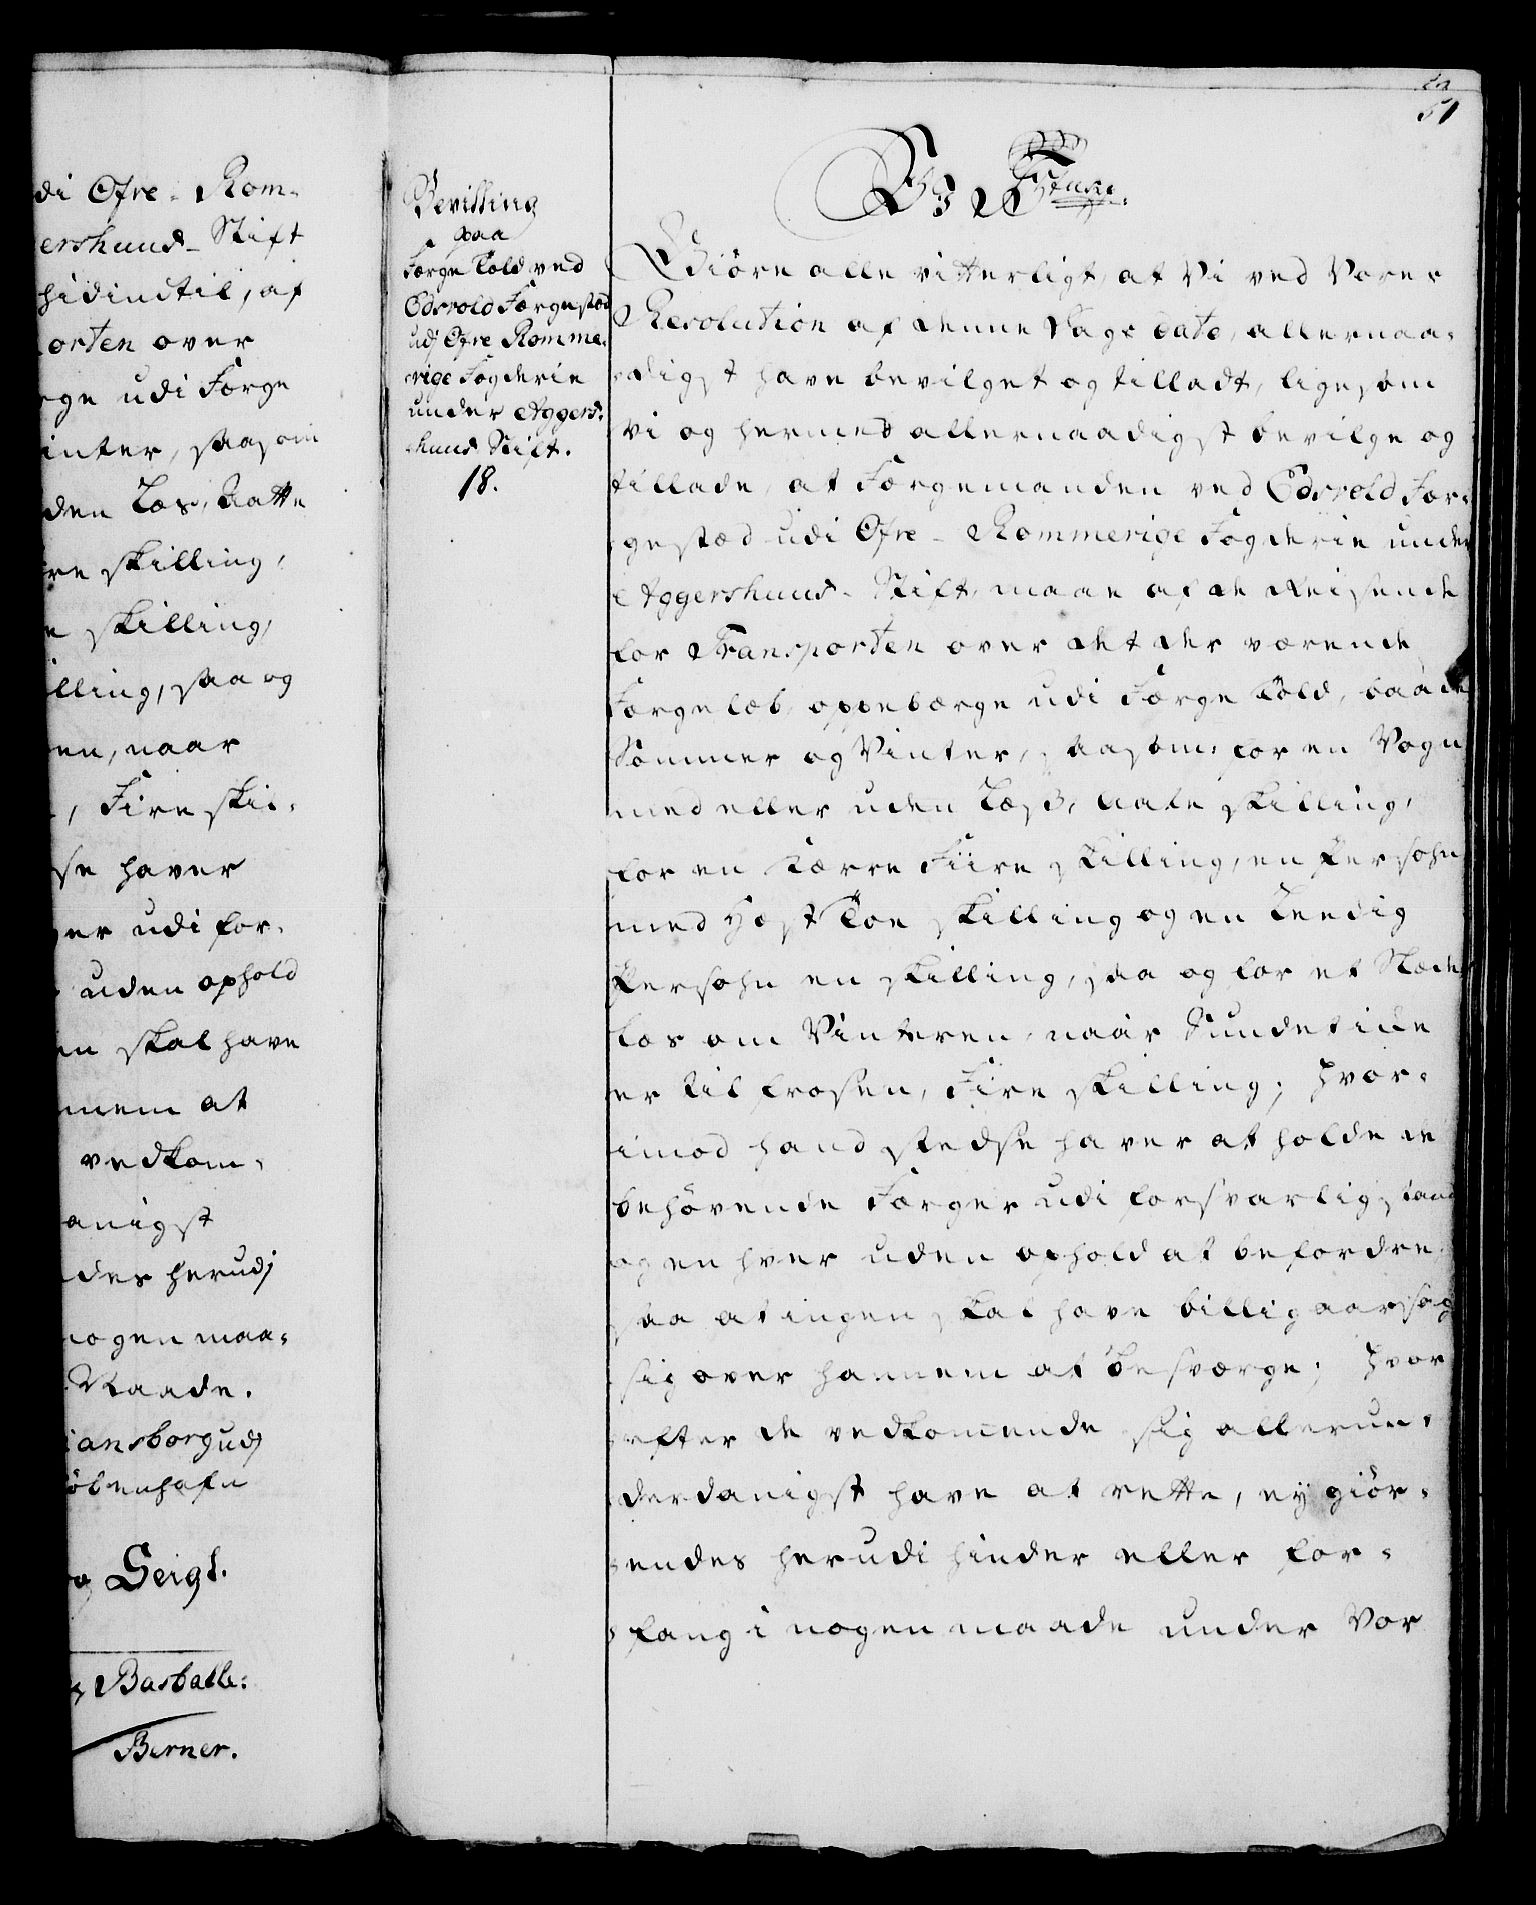 di Øfre- Rom-
ershuus- Stift
hidindtil, af
orten over
ge udi Færge
inter, saasom
den Læs, Aatte
re skilling,
e skilling,
lling, saa og
en, naar
, Fire skil-
se haver
er udi for-
uden ophold
en skal have
mem at
vedkom-
anigst
des herudj
nogen maa-
Naade.
iansborg udj
öbenhafn
Seigl.
Basballe:
Berner.
51
Bevilling
paa
Færge Told ved
Edsvold Færgestæd
udj Øfre Romme-
rige Fogderie
under Aggers-
huus Stift.
18.
Giöre alle vitterligt, at Vi ved Vores
Resolution af denne Dags dato, allernaa-
digst have bevilget og tilladt, ligesom
Vi og hermed allernaadigst bevilge og
tillade, at Færgemanden ved Edsvold Fær-
gestæd udi Øfre- Rommerige Fogderie under
Aggershuus- Stift, maae af de Reisende
for Transporten over det der værende
Færgeløb, oppebærge udi Færge Told, baade
Sommer og Vinter, saasom: for en Vogn
med eller uden Læs, Aatte skilling,
for en Kærre Fiire skilling, en Persohn
med Hest Toe skilling og en Leedig
Persohn en skilling, saa og for et Slæde
læs om Vinteren, naar Sundet icke
er tilfrosen, Fire skilling; hvor-
imod hand stedse haver at holde de
behövende Færger udi forsvarlig stand
og en hver uden ophold at befordre,
saa at ingen skal have billig aarsag
sig over hannem at besværge; hvor
efter de vedkommende sig allerun-
derdanigst have at rette, ey giör-
endes herudi hinder eller for-
fang i nogen maade under Vor